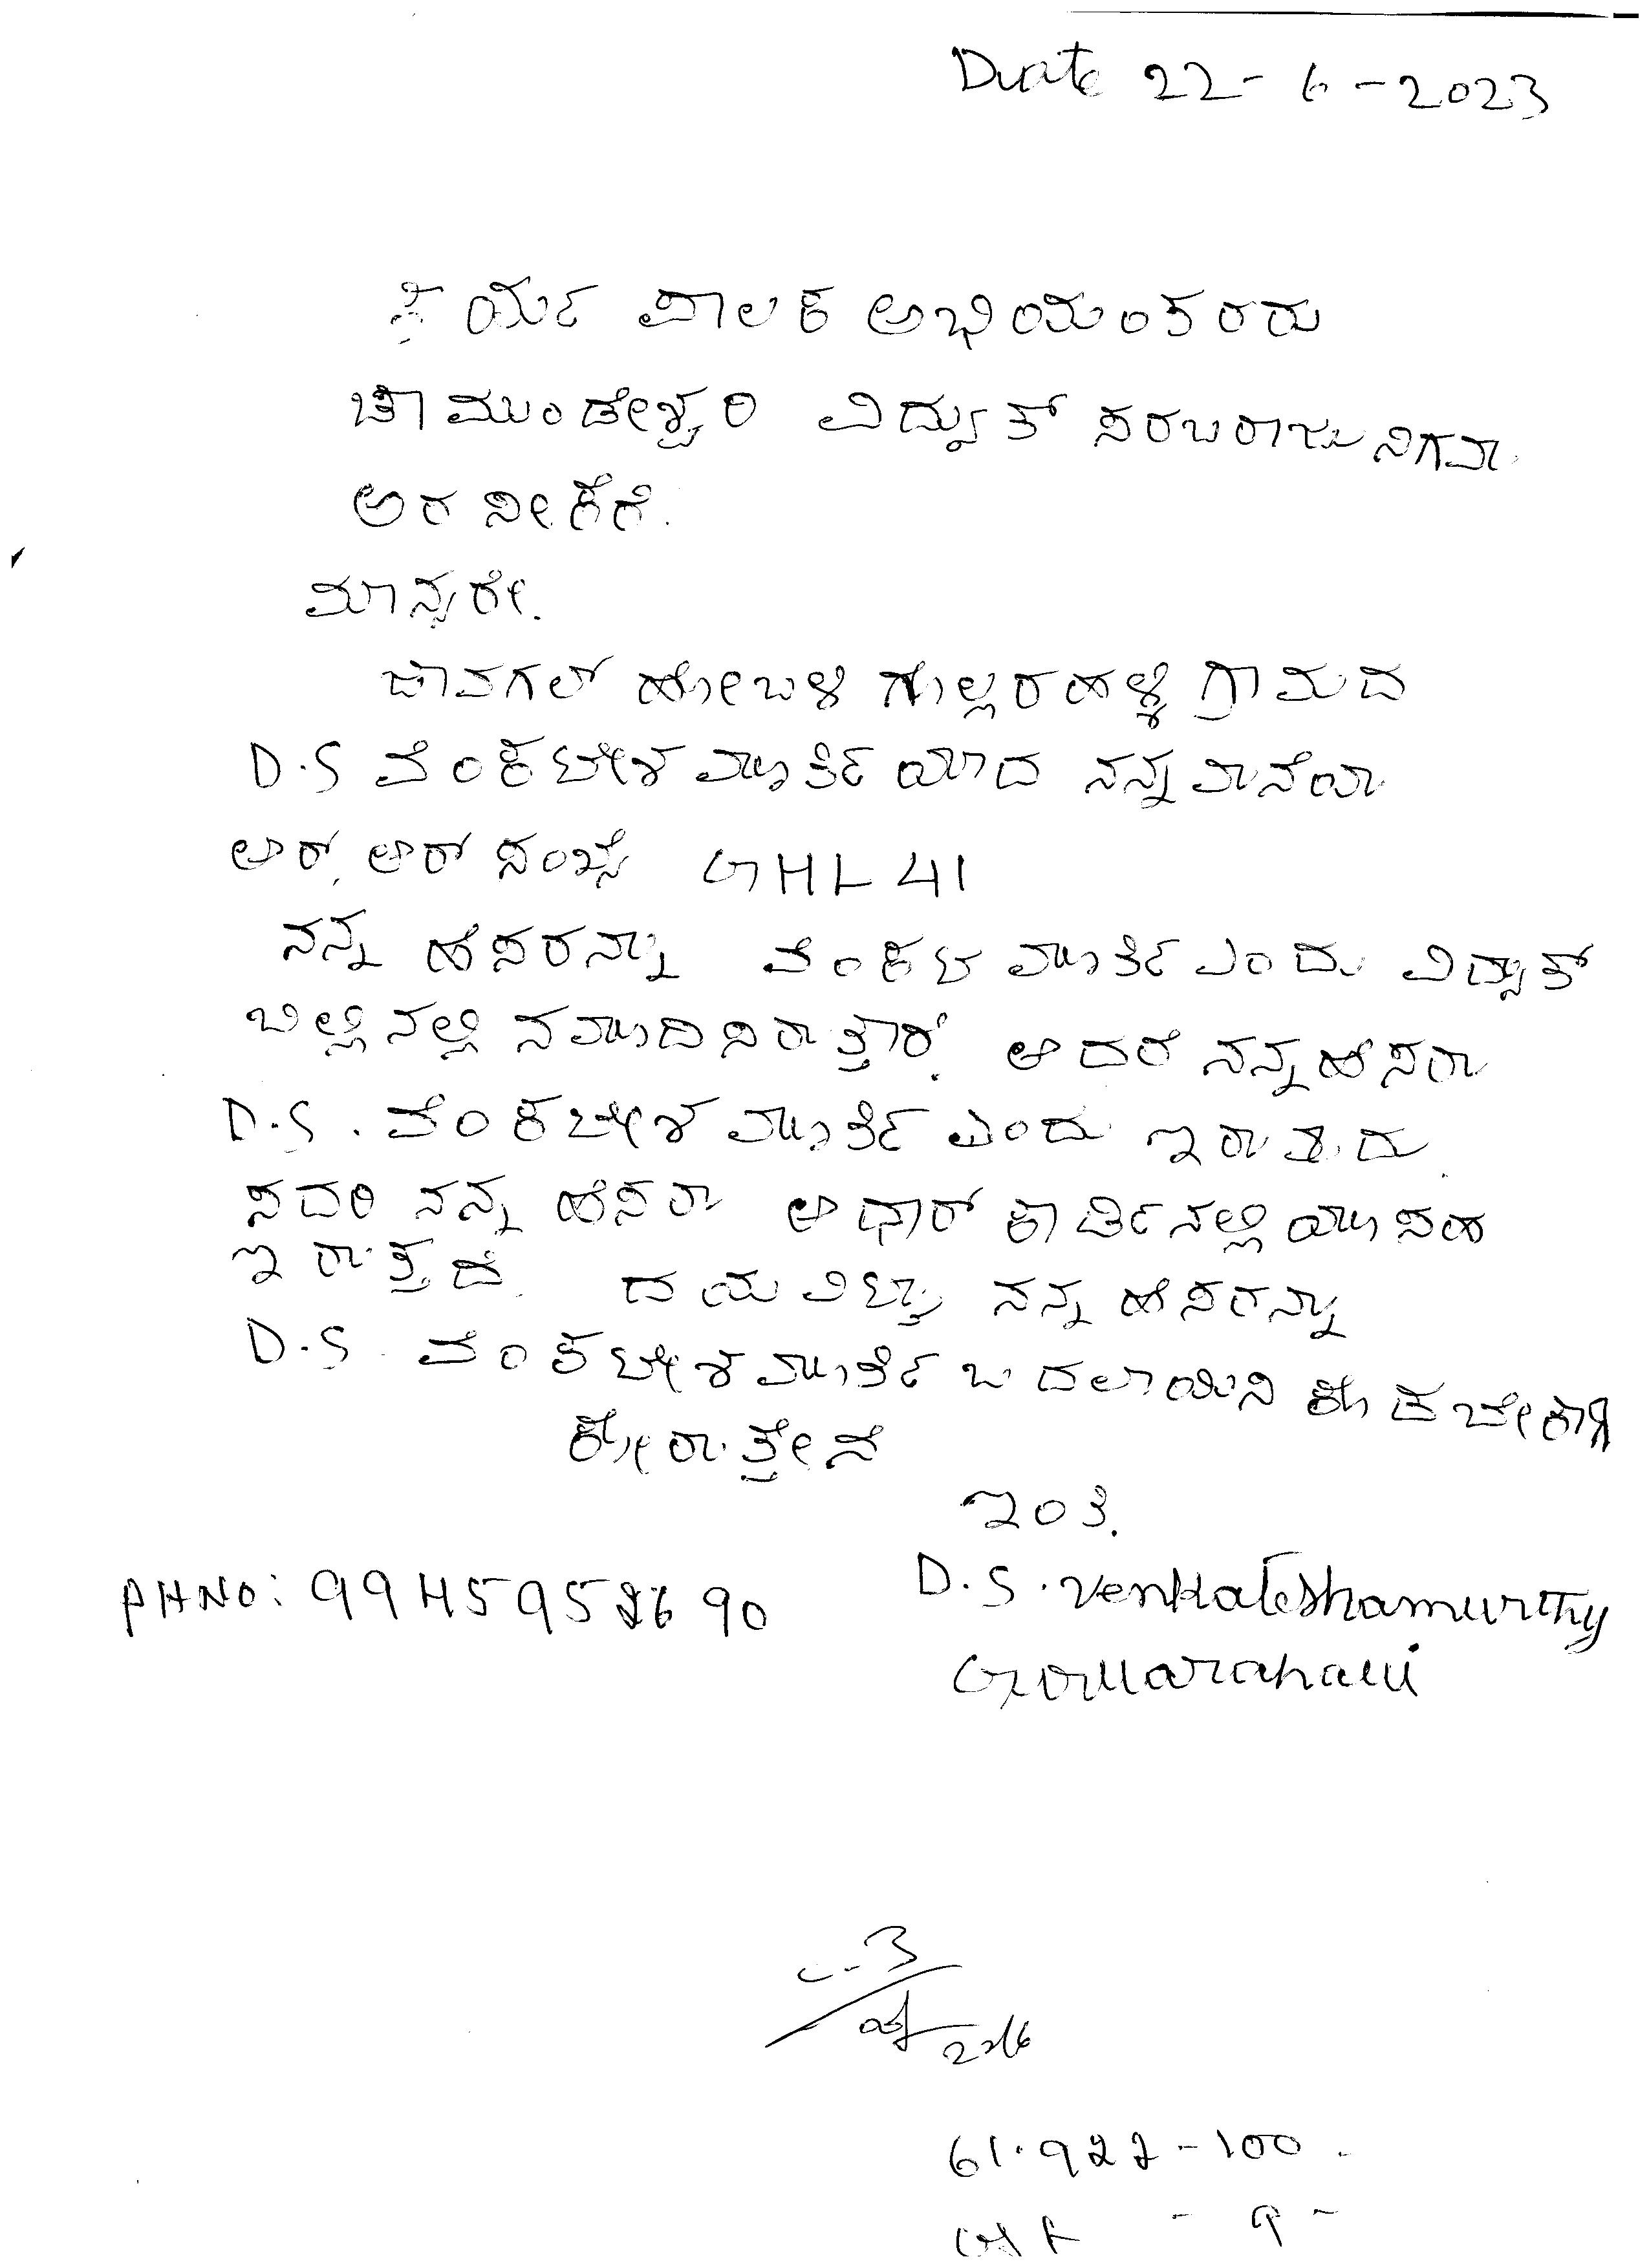 Date 22-6-2023
ಕಾರ್ಯ ಪಾಲಕ ಅಭಿಯಂತರರು
ಚಾಮುಂಡೇಶ್ವರಿ ವಿದ್ಯುತ್ ಸರಬರಾಜು ನಿಗಮ
ಅರಸೀಕೆರೆ.
ಮಾನ್ಯರೇ.
ಜಾವಗಲ್ ಹೋಬಳಿ ಗೊಲ್ಲರಹಳ್ಳಿ ಗ್ರಾಮದ
D.S ವೆಂಕಟೇಶ ಮೂರ್ತಿಯಾದ ನನ್ನ ಮನೆಯ
ಆರ್. ಆರ್ ಸಂಖ್ಯೆ GHL 41
ನನ್ನ ಹೆಸರನ್ನು ವೆಂಕಟ ಮೂರ್ತಿ ಎಂದು ವಿದ್ಯುತ್
ಬಿಲ್ಲಿನಲ್ಲಿ ನಮೂದಿಸಿರುತ್ತಾರೆ. ಆದರೆ ನನ್ನ ಹೆಸರು
D.S. ವೆಂಕಟೇಶ ಮೂರ್ತಿ ಎಂದು ಇರುತ್ತದೆ.
ಸದರಿ ನನ್ನ ಹೆಸರು ಆಧಾರ್ ಕಾರ್ಡಿನಲ್ಲಿಯೂ ಸಹ
ಇರುತ್ತದೆ. ದಯವಿಟ್ಟು ನನ್ನ ಹೆಸರನ್ನು
D.S. ವೆಂಕಟೇಶಮೂರ್ತಿ ಬದಲಾಯಿಸಿ ಕೊಡಬೇಕಾಗಿ
ಕೋರುತ್ತೇನೆ
ಇಂತಿ.
D.S. Venkateshamurthy
PHNO:
Gollarahalli
22/6